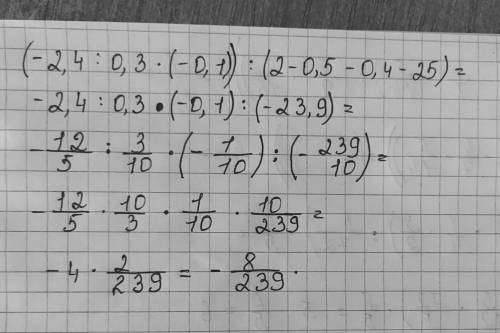 (-2,4 : 0,3 · (-0,1)) : (2-0,5 - 0,4 - 25) =
-2,4 : 0,3 · (-0,1) : (-23,9) =
- 12/5 : 3/10 · (- 1/10) : (- 239/10) =
- 12/5 · 10/3 · 1/10 · 10/239 =
- 4 · 2/239 = - 8/239 .